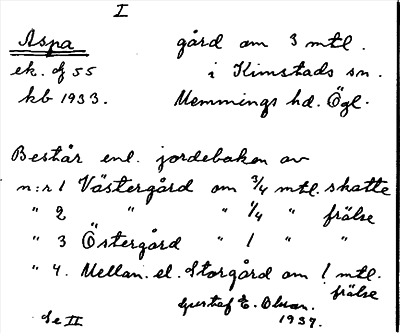 I
Aspa gård om 3 mtl.
ek. bf 55 i Kimstads sn.
kb 1933. Memmings hd. Ögl.
Består enl. jordeboken av
n:r 1 Västergård om 3/4 mtl. skatte
" 2 " " 1/4 " frälse
" 3 Östergård " 1 " "
" 4. Mellan. el. Storgård om 1 mtl.
frälse
Gustaf E. Olson.
Se II 1937.